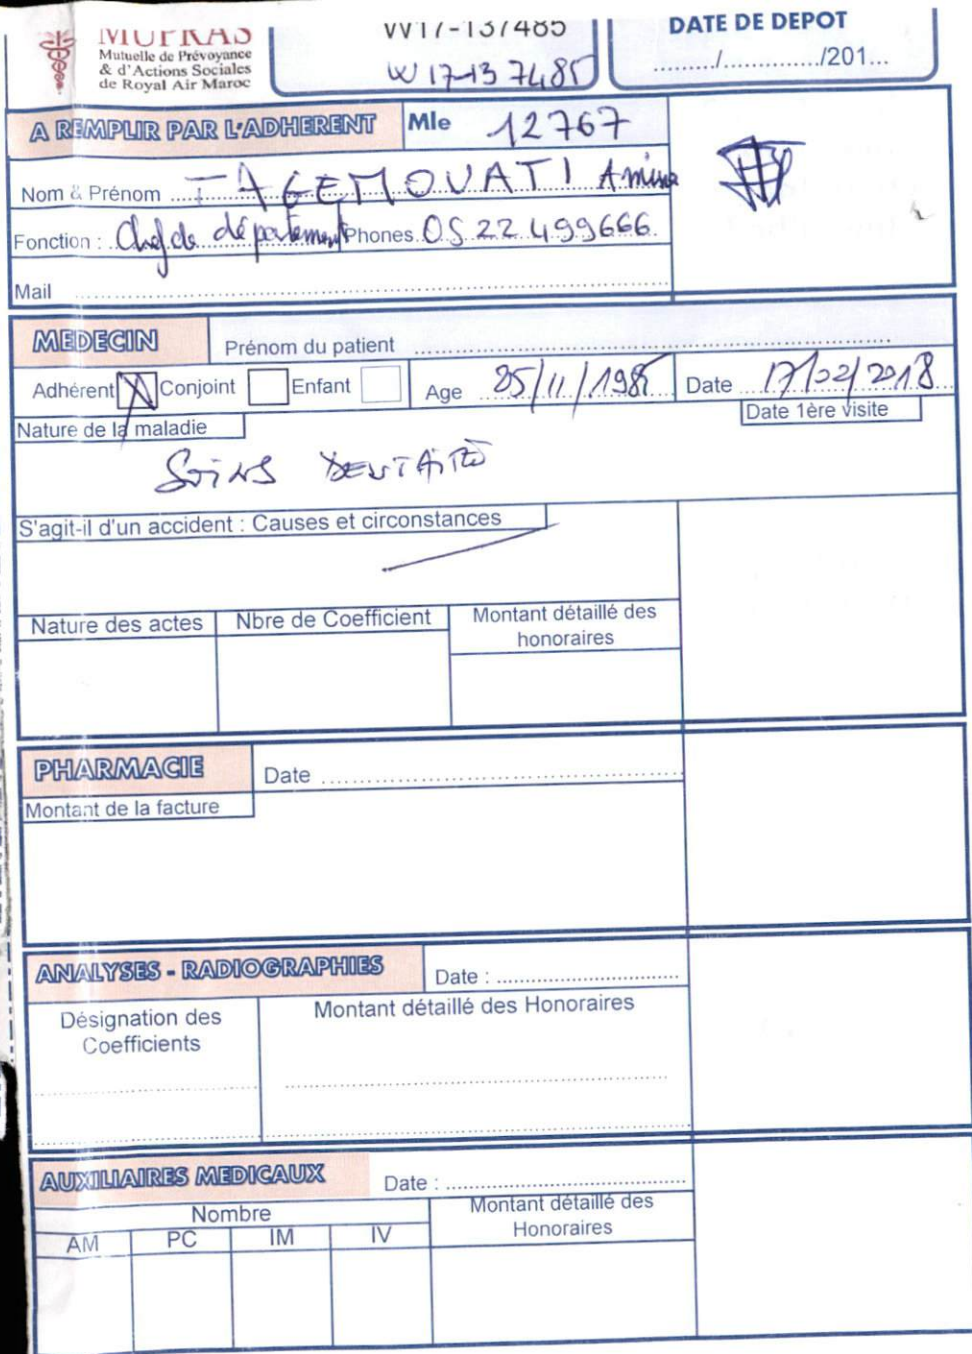 MUPRAS
Mutuelle de Prévoyance
& d'Actions Sociales
de Royal Air Maroc
W17-137485
W17-137485
DATE DE DEPOT
......../............../201...
A REMPLIR PAR L'ADHERENT
Mle 12767
Nom & Prénom TAGEMOUATI Amina
Fonction : Chef de département Phones 0522499666
Mail
MEDECIN
Prénom du patient
Adhérent X Conjoint Enfant
Age 25/11/1985
Date 17/02/2018
Date 1ère visite
Nature de la maladie
SOINS DENTAIRES
S'agit-il d'un accident : Causes et circonstances
Nature des actes
Nbre de Coefficient
Montant détaillé des
honoraires
PHARMACIE
Date
Montant de la facture
ANALYSES - RADIOGRAPHIES
Date :
Désignation des
Coefficients
Montant détaillé des Honoraires
AUXILIAIRES MEDICAUX
Date :
Nombre
Montant détaillé des
Honoraires
AM PC IM IV